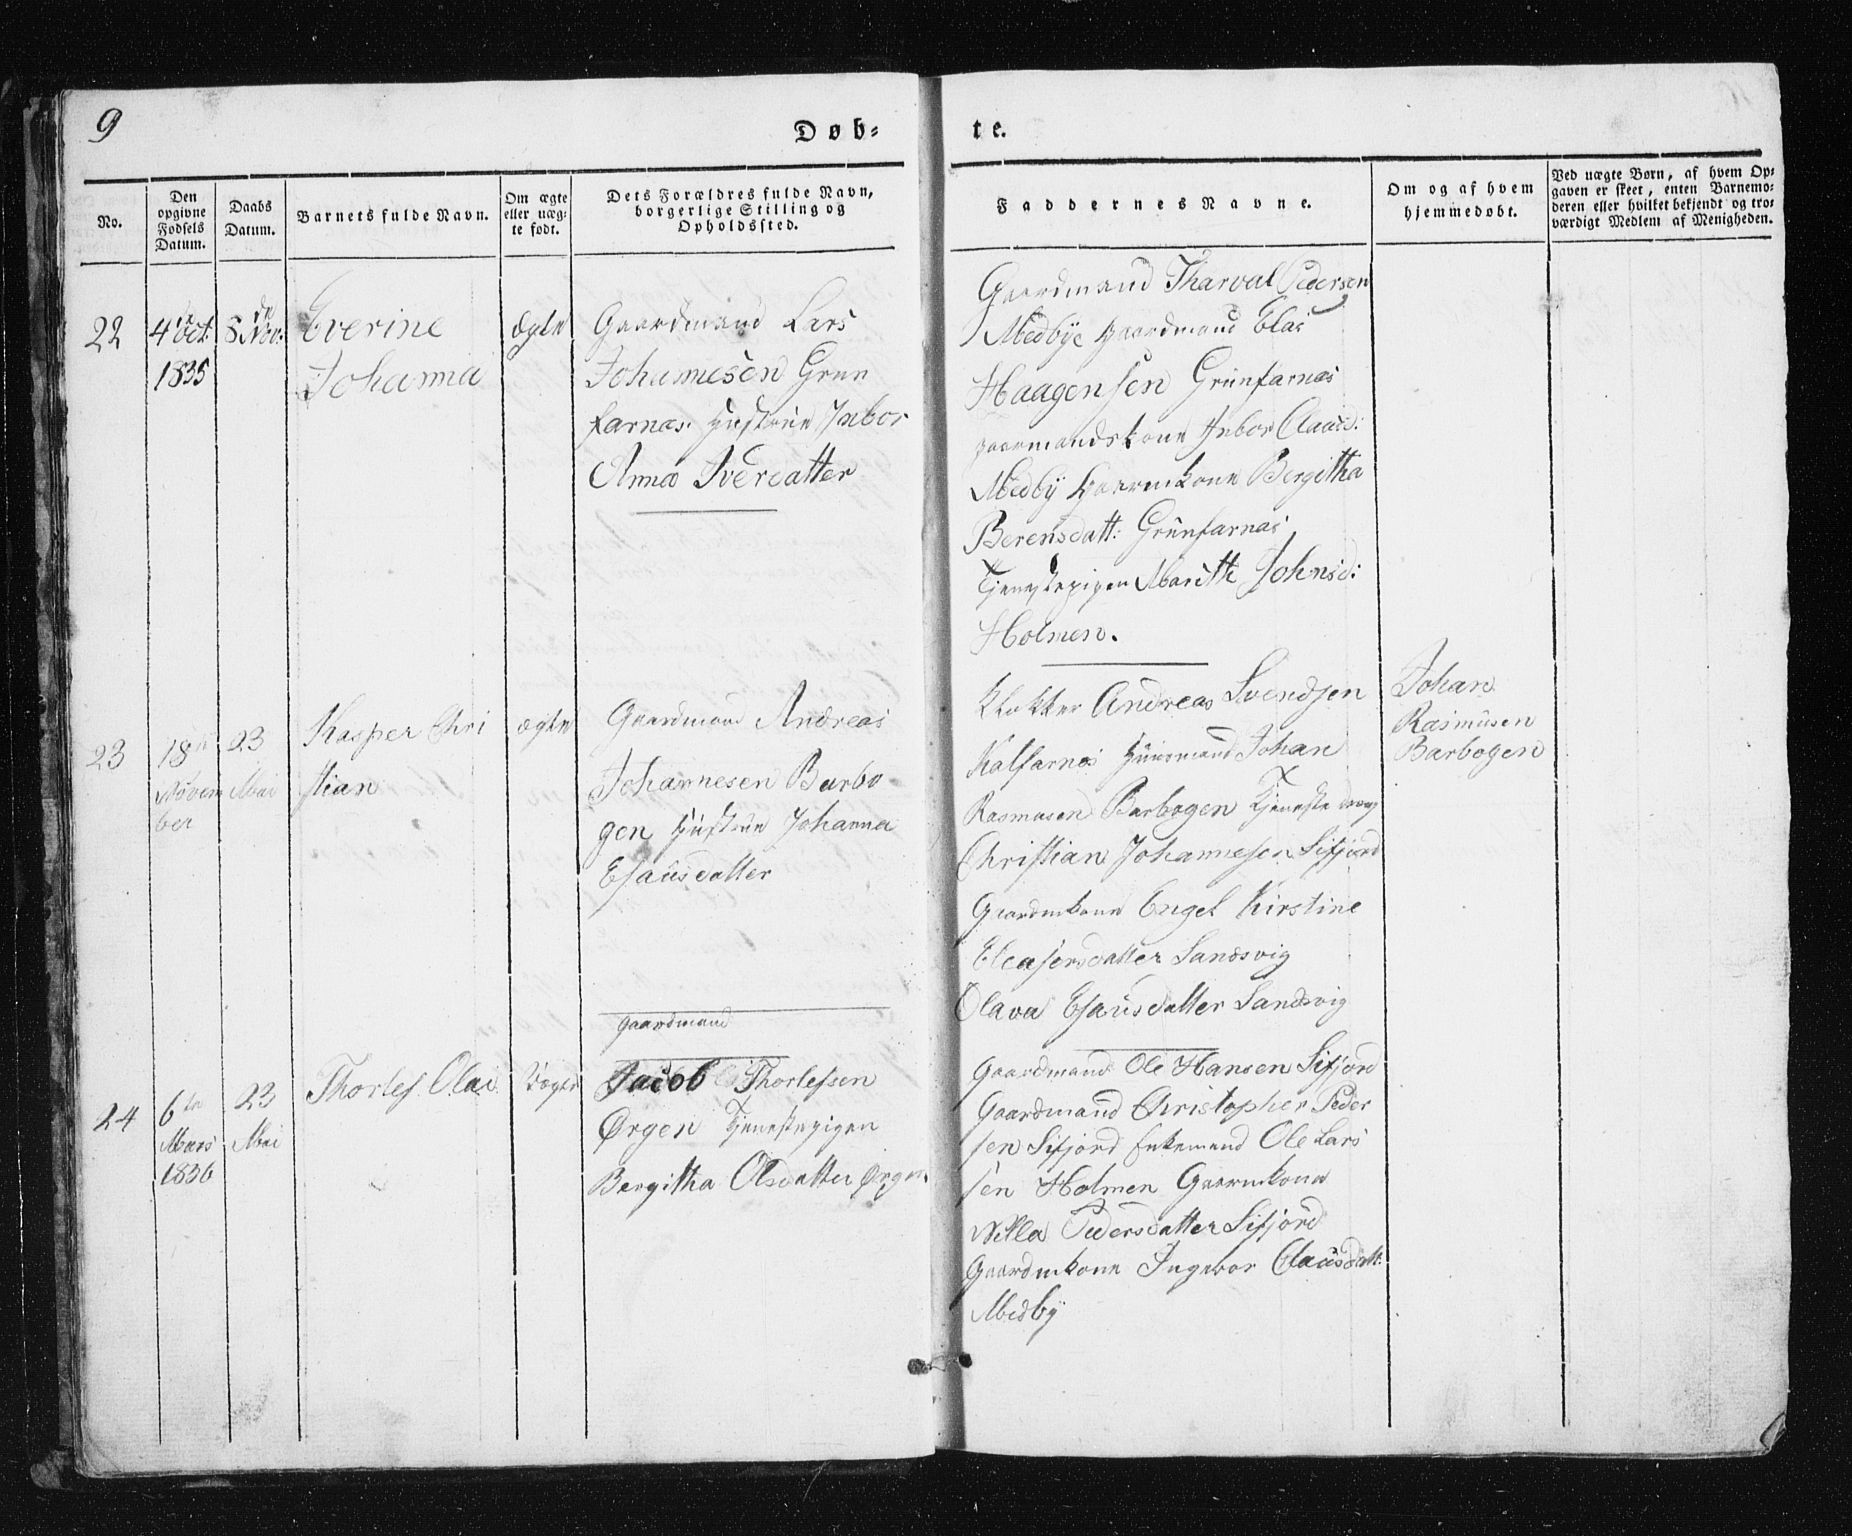 9
Døb-
te.
No.
Den opgivne Fødsels Datum.
Daabs Datum.
Barnets fulde Navn.
Om ægte eller uæg- te født.
Dets Forældres fulde Navn, borgerlige Stilling og Opholdssted.
Faddernes Navne.
Om og af hvem hjemmedøbt.
Ved uægte Børn, af hvem Op- gaven er skeet, enten Barnemo- deren eller hvilket bekjendt og tro- værdigt Medlem af Menigheden.
22
4de Oct:
1835
8de Nov:
Everine
Johanna
Ægte
Gaardmand Lars
Johannesen Grun
farnæs. Hustrue Inbor
Anna Iverdatter
Gaardmand Tharval Pedersen
Medbye Gaardmand Elas
Haagensen Grünfarnæs
gaarmandskone Inbor Claüsd:
Medbÿ Gaarmkone Bergitha
Berensdatt: Grünfarnæs
Tjenestepigen Marith Johnsd:
Holmen.
23
18de
Novem
ber
23
Mai
Kasper Chri
stian
ægte
Gaardmand Andreas
Johannesen Barbo
gen Hüstrüe Johanna
Esaüsdatter
Klokker Andreas Svendsen
Kalfarnes Huusmand Johan
Rasmusen Barbogen Tjeneste dreng
Christian Johannesen Sifjord
Gaardmkone Engel Kirstine
Eleasersdatter Sandsvig
Olava Esaüsdatter Sandsvig
Johan
Rasmüsen
Barbogen
24
6te
Mars
1836
23
Mai
Thorlef Olai
Uægte
Gaardmand
Jacob Thorlefsen
Ørgen Tjenestepigen
Bergitha Olsdatter Ørgen
Gaardmand Ole Hansen Sifjord
Gaardmand Christopher Peder
sen Sifjord Enkemand Ole Lars
sen Holmen Gaarmkone
Nilla Pedersdatter Sifjord
Gaardmkone Ingebor Claüsdatt:
Medbÿ